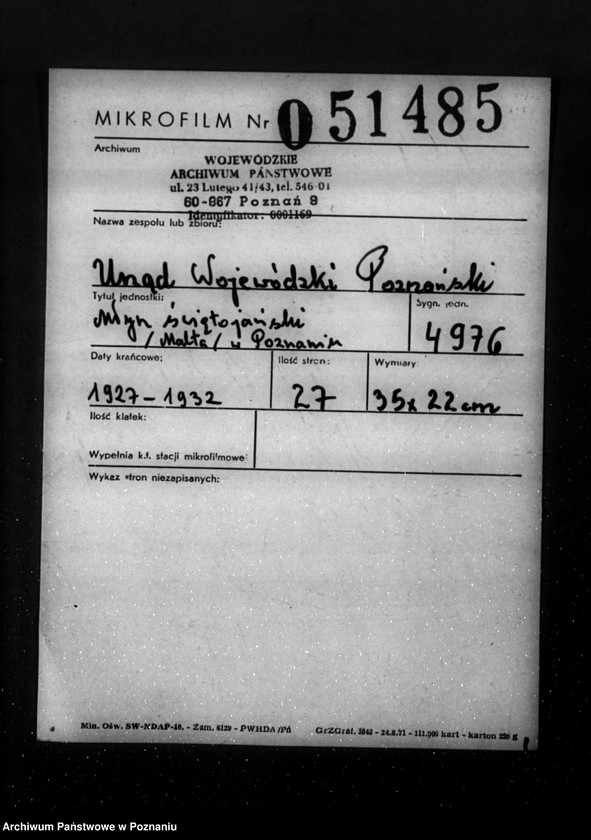 MIKROFILM Nr 0 51485
Archiwum
WOJEWÓDZKIE
ARCHIWUM PAŃSTWOWE
ul. 23 Lutego 41/43, tel. 546-01
60-967 Poznań 9
Identyfikator: 0001169
Nazwa zespołu lub zbioru:
Urząd Wojewódzki Poznański
Tytuł jednostki:
Sygn. jedn.
Młyn świętojański
/Malta/ w Poznaniu
4976
Daty krańcowe:
Ilość stron:
Wymiary:
1927-1932
27
35x22cm
Ilość klatek:
Wypełnia k.t. stacji mikrofilmowej
Wykaz stron niezapisanych:
Min. Ośw. SW-NDAP-10. - Zam. 6129 - PWHDA/Pń
GrZGraf. 3843 - 24.8.71 - 111.000 kart - karton 220 g
Archiwum Państwowe w Poznaniu